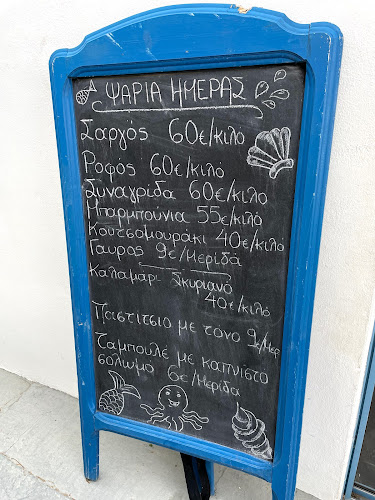 ΨΑΡΙΑ ΗΜΕΡΑΣ
Σαργός 60€/κιλό
Ροφός 60€/κιλό
Συναγρίδα 60€/κιλό
Μπαρμπούνια 55€/κιλό
Κουτσομουράκι 40€/κιλό
Γαυρος 9€/Μερίδά
Καλαμάρι Σκυριανό
40€/κιλό
Παστιτσιο με τονο 9€/Μερ
Ταμπουλέ με καπνιστο
σολωμό 6€/Μερίδα